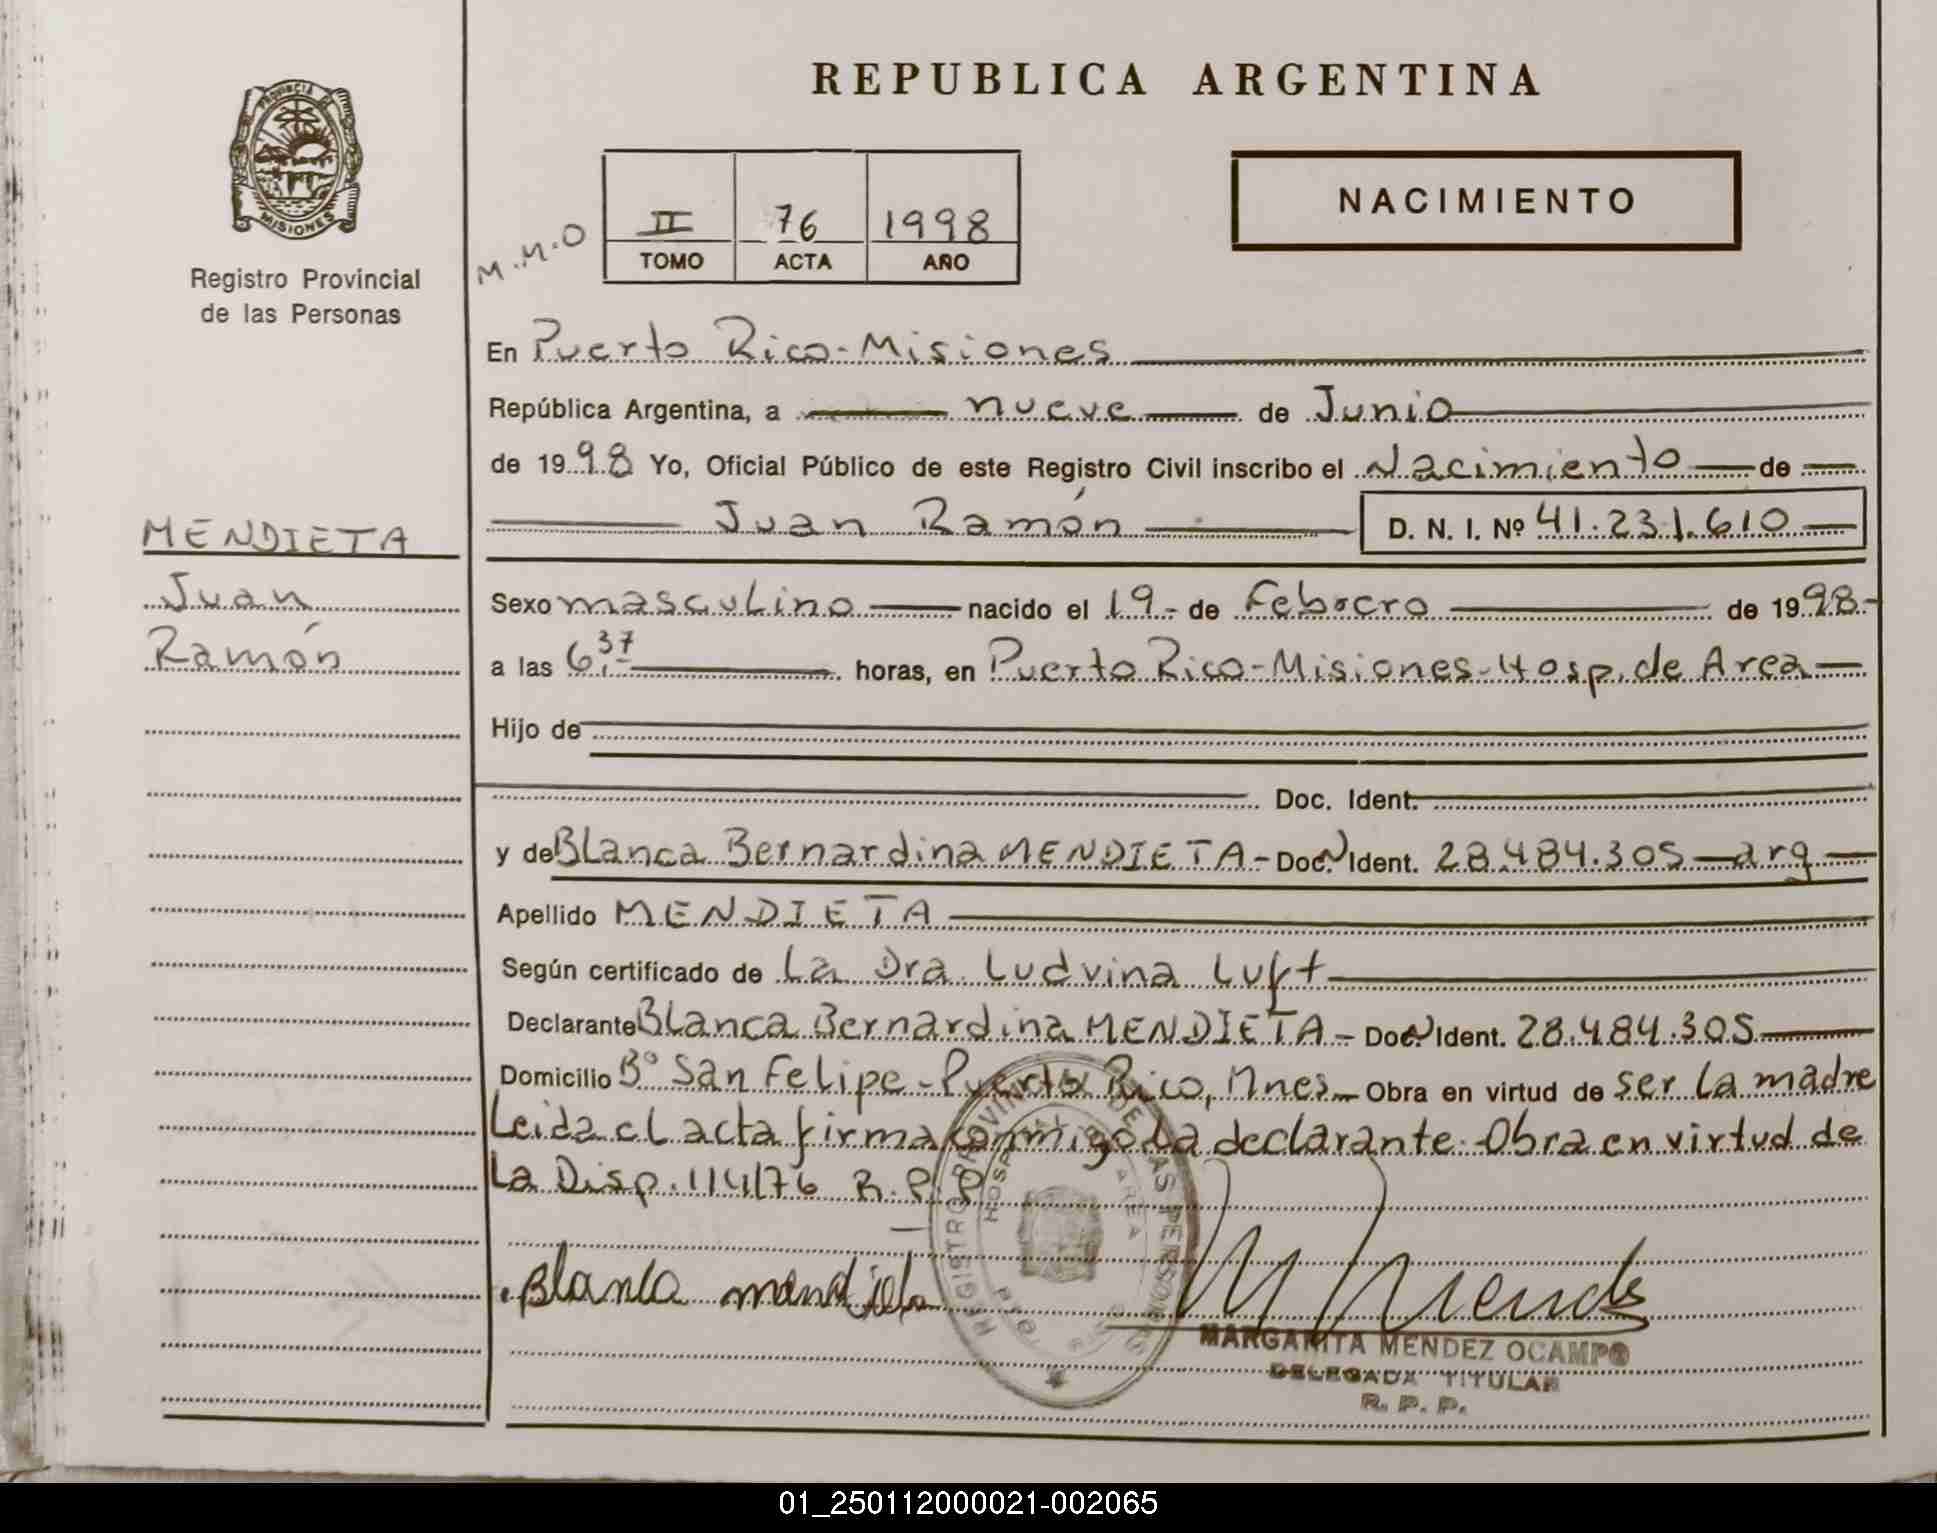 REPUBLICA ARGENTINA
PROVINCIA DE
MISIONES
Registro Provincial
de las Personas
M.M.O
II 76 1998
TOMO ACTA AÑO
NACIMIENTO
En Puerto Rico-Misiones
República Argentina, a nueve de Junio
de 1998 Yo, Oficial Público de este Registro Civil inscribo el Nacimiento de
Juan Ramón D. N. I. Nº 41.231.610
MENDIETA
Juan
Ramón
Sexo masculino nacido el 19- de Febrero de 1998-
a las 6,37 horas, en Puerto Rico-Misiones-Hosp. de Area
Hijo de
Doc. Ident.
y de Blanca Bernardina MENDIETA- Doc. N Ident. 28.484.305 arg
Apellido MENDIETA
Según certificado de La Dra. Ludvina Luft
Declarante Blanca Bernardina MENDIETA- Doc. N Ident. 28.484.305
Domicilio Bº San Felipe-Puerto Rico, Mnes- Obra en virtud de ser La madre
Leida el acta firma conmigo La declarante. Obra en virtud de
La Disp. 114/76 R.P.P
REGISTRO PROVINCIAL DE LAS PERSONAS
Blanca mendieta
M Mendez
MARGARITA MENDEZ OCAMPO
DELEGADA TITULAR
R. P. P.
01_250112000021-002065